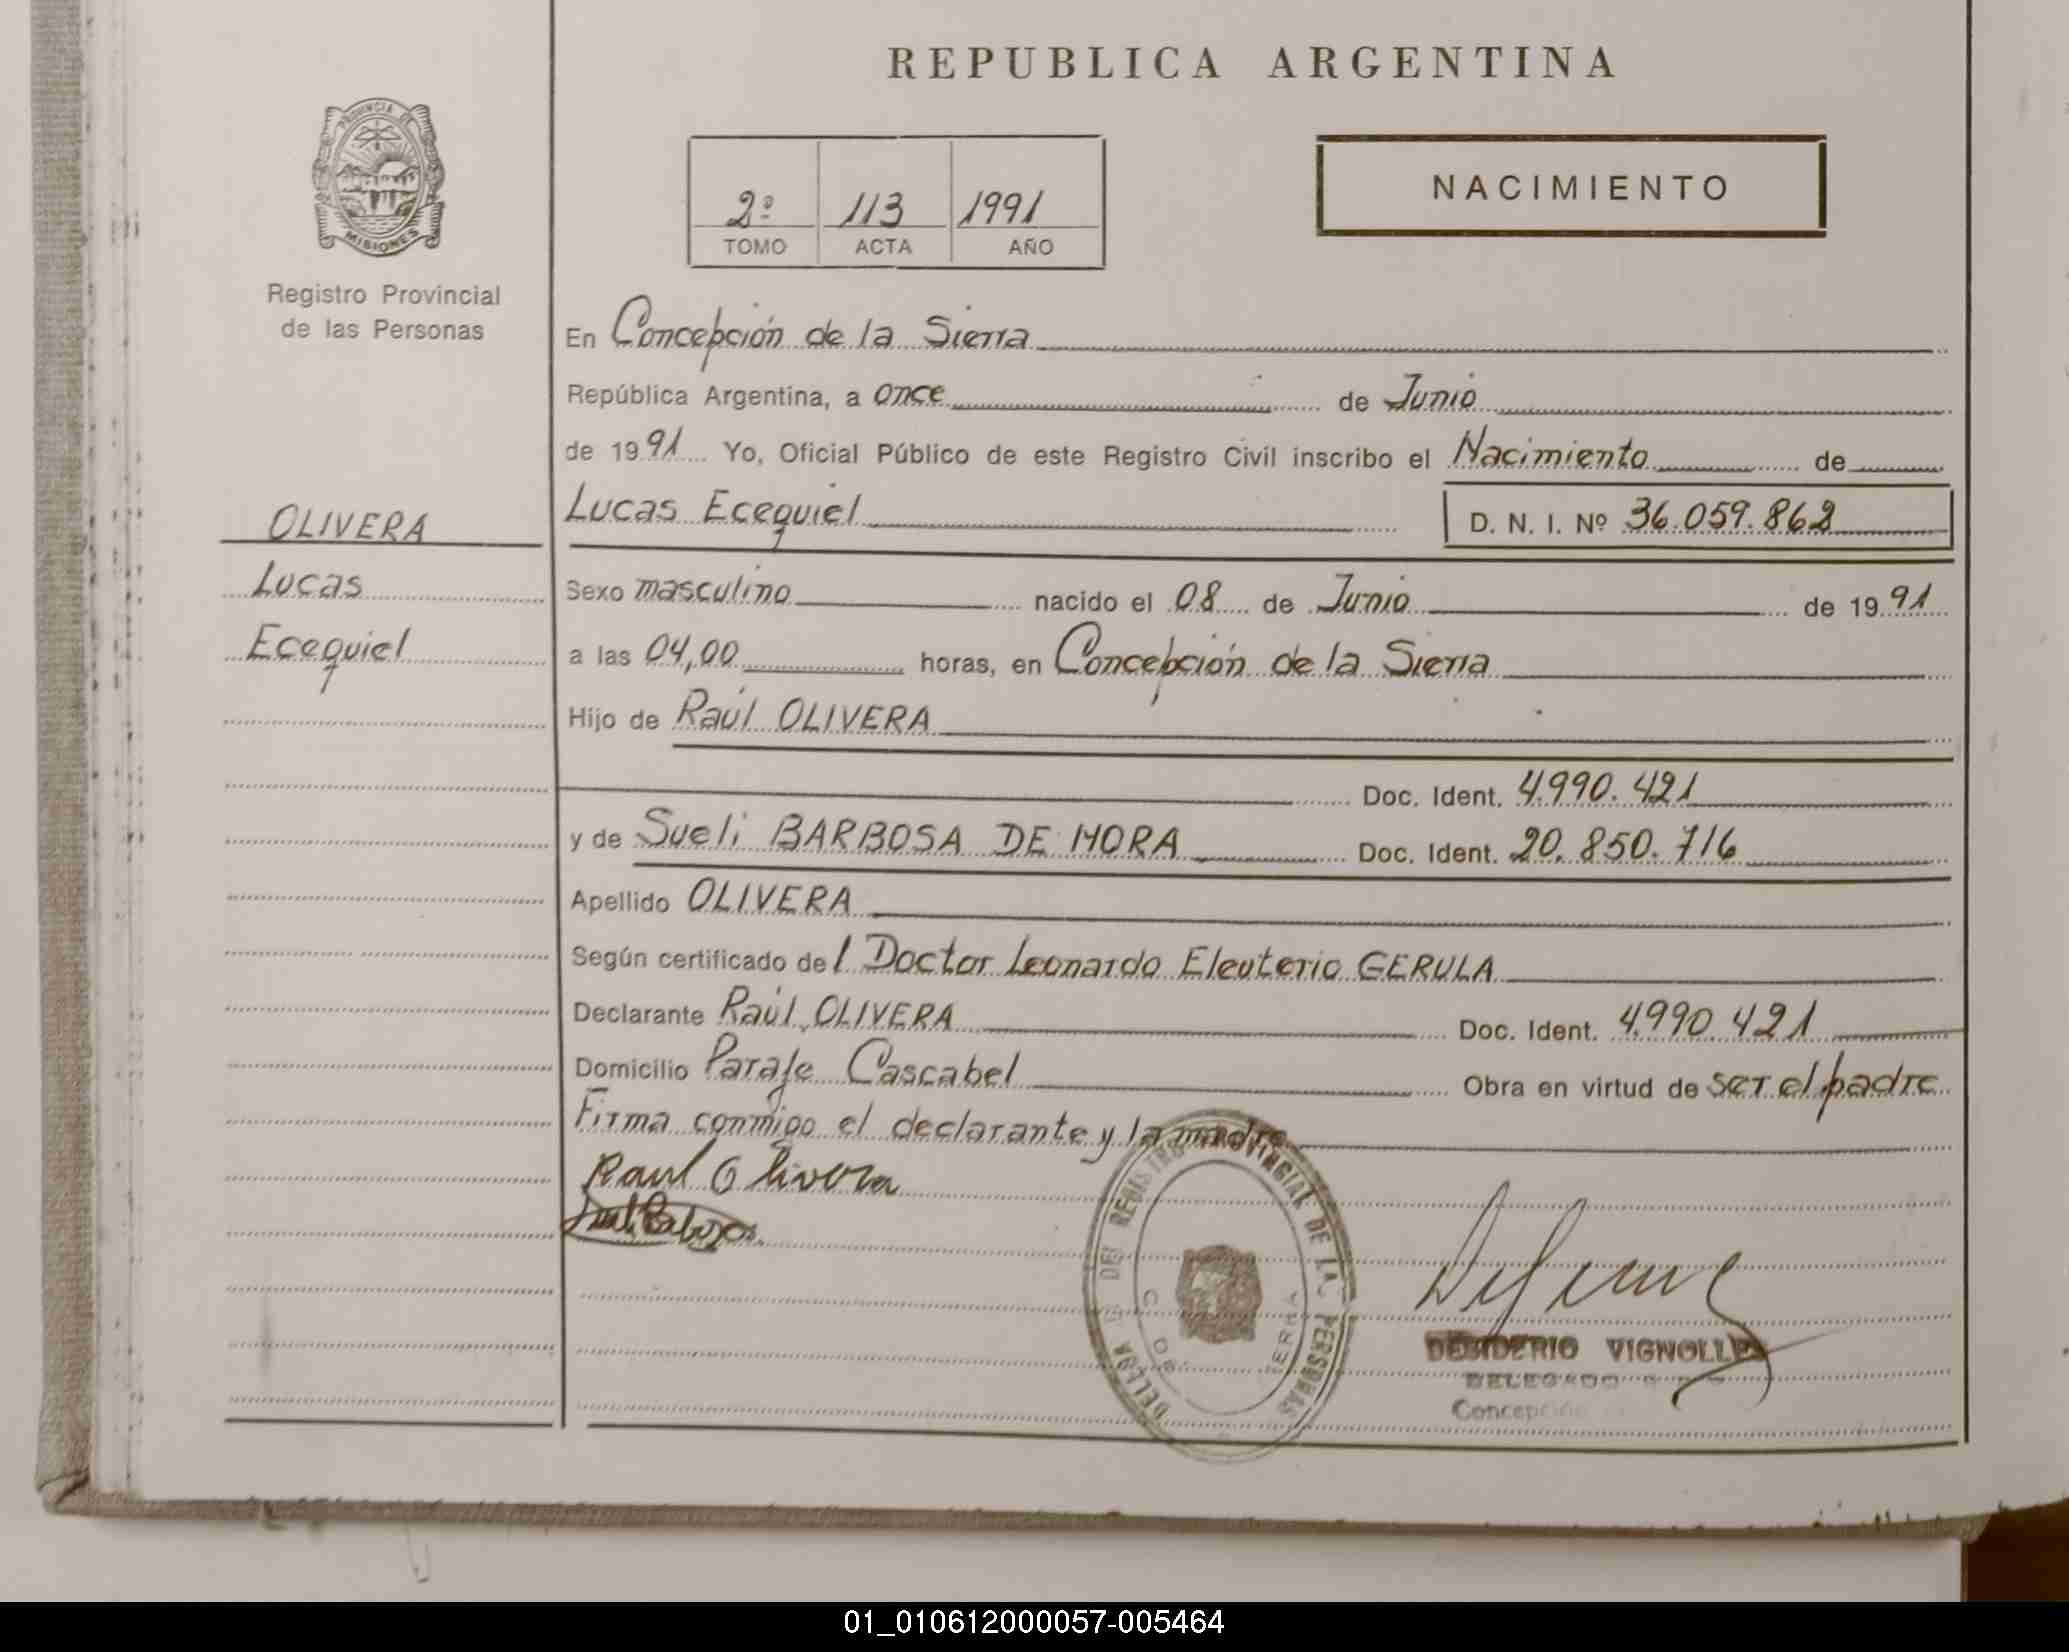 REPUBLICA ARGENTINA
PROVINCIA DE
MISIONES
Registro Provincial
de las Personas
2º 113 1991
TOMO ACTA AÑO
NACIMIENTO
En Concepción de la Sierra
República Argentina, a once de Junio
de 1991 Yo, Oficial Público de este Registro Civil inscribo el Nacimiento de
Lucas Ecequiel D. N. I. Nº 36.059.862
OLIVERA
Lucas
Ecequiel
Sexo masculino nacido el 08 de Junio de 1991
a las 04,00 horas, en Concepción de la Sierra
Hijo de Raúl OLIVERA
Doc. Ident. 4.990.421
y de Sueli BARBOSA DE MORA Doc. Ident. 20.850.716
Apellido OLIVERA
Según certificado del Doctor Leonardo Eleuterio GERULA
Declarante Raúl OLIVERA Doc. Ident. 4.990.421
Domicilio Paraje Cascabel Obra en virtud de ser el padre
Firma conmigo el declarante y la madre
Raul Olivera
DEL REGISTRO PROVINCIAL DE LAS PERSONAS
DESIDERIO VIGNOLLES
DELEGADO
Concepción
01_010612000057-005464